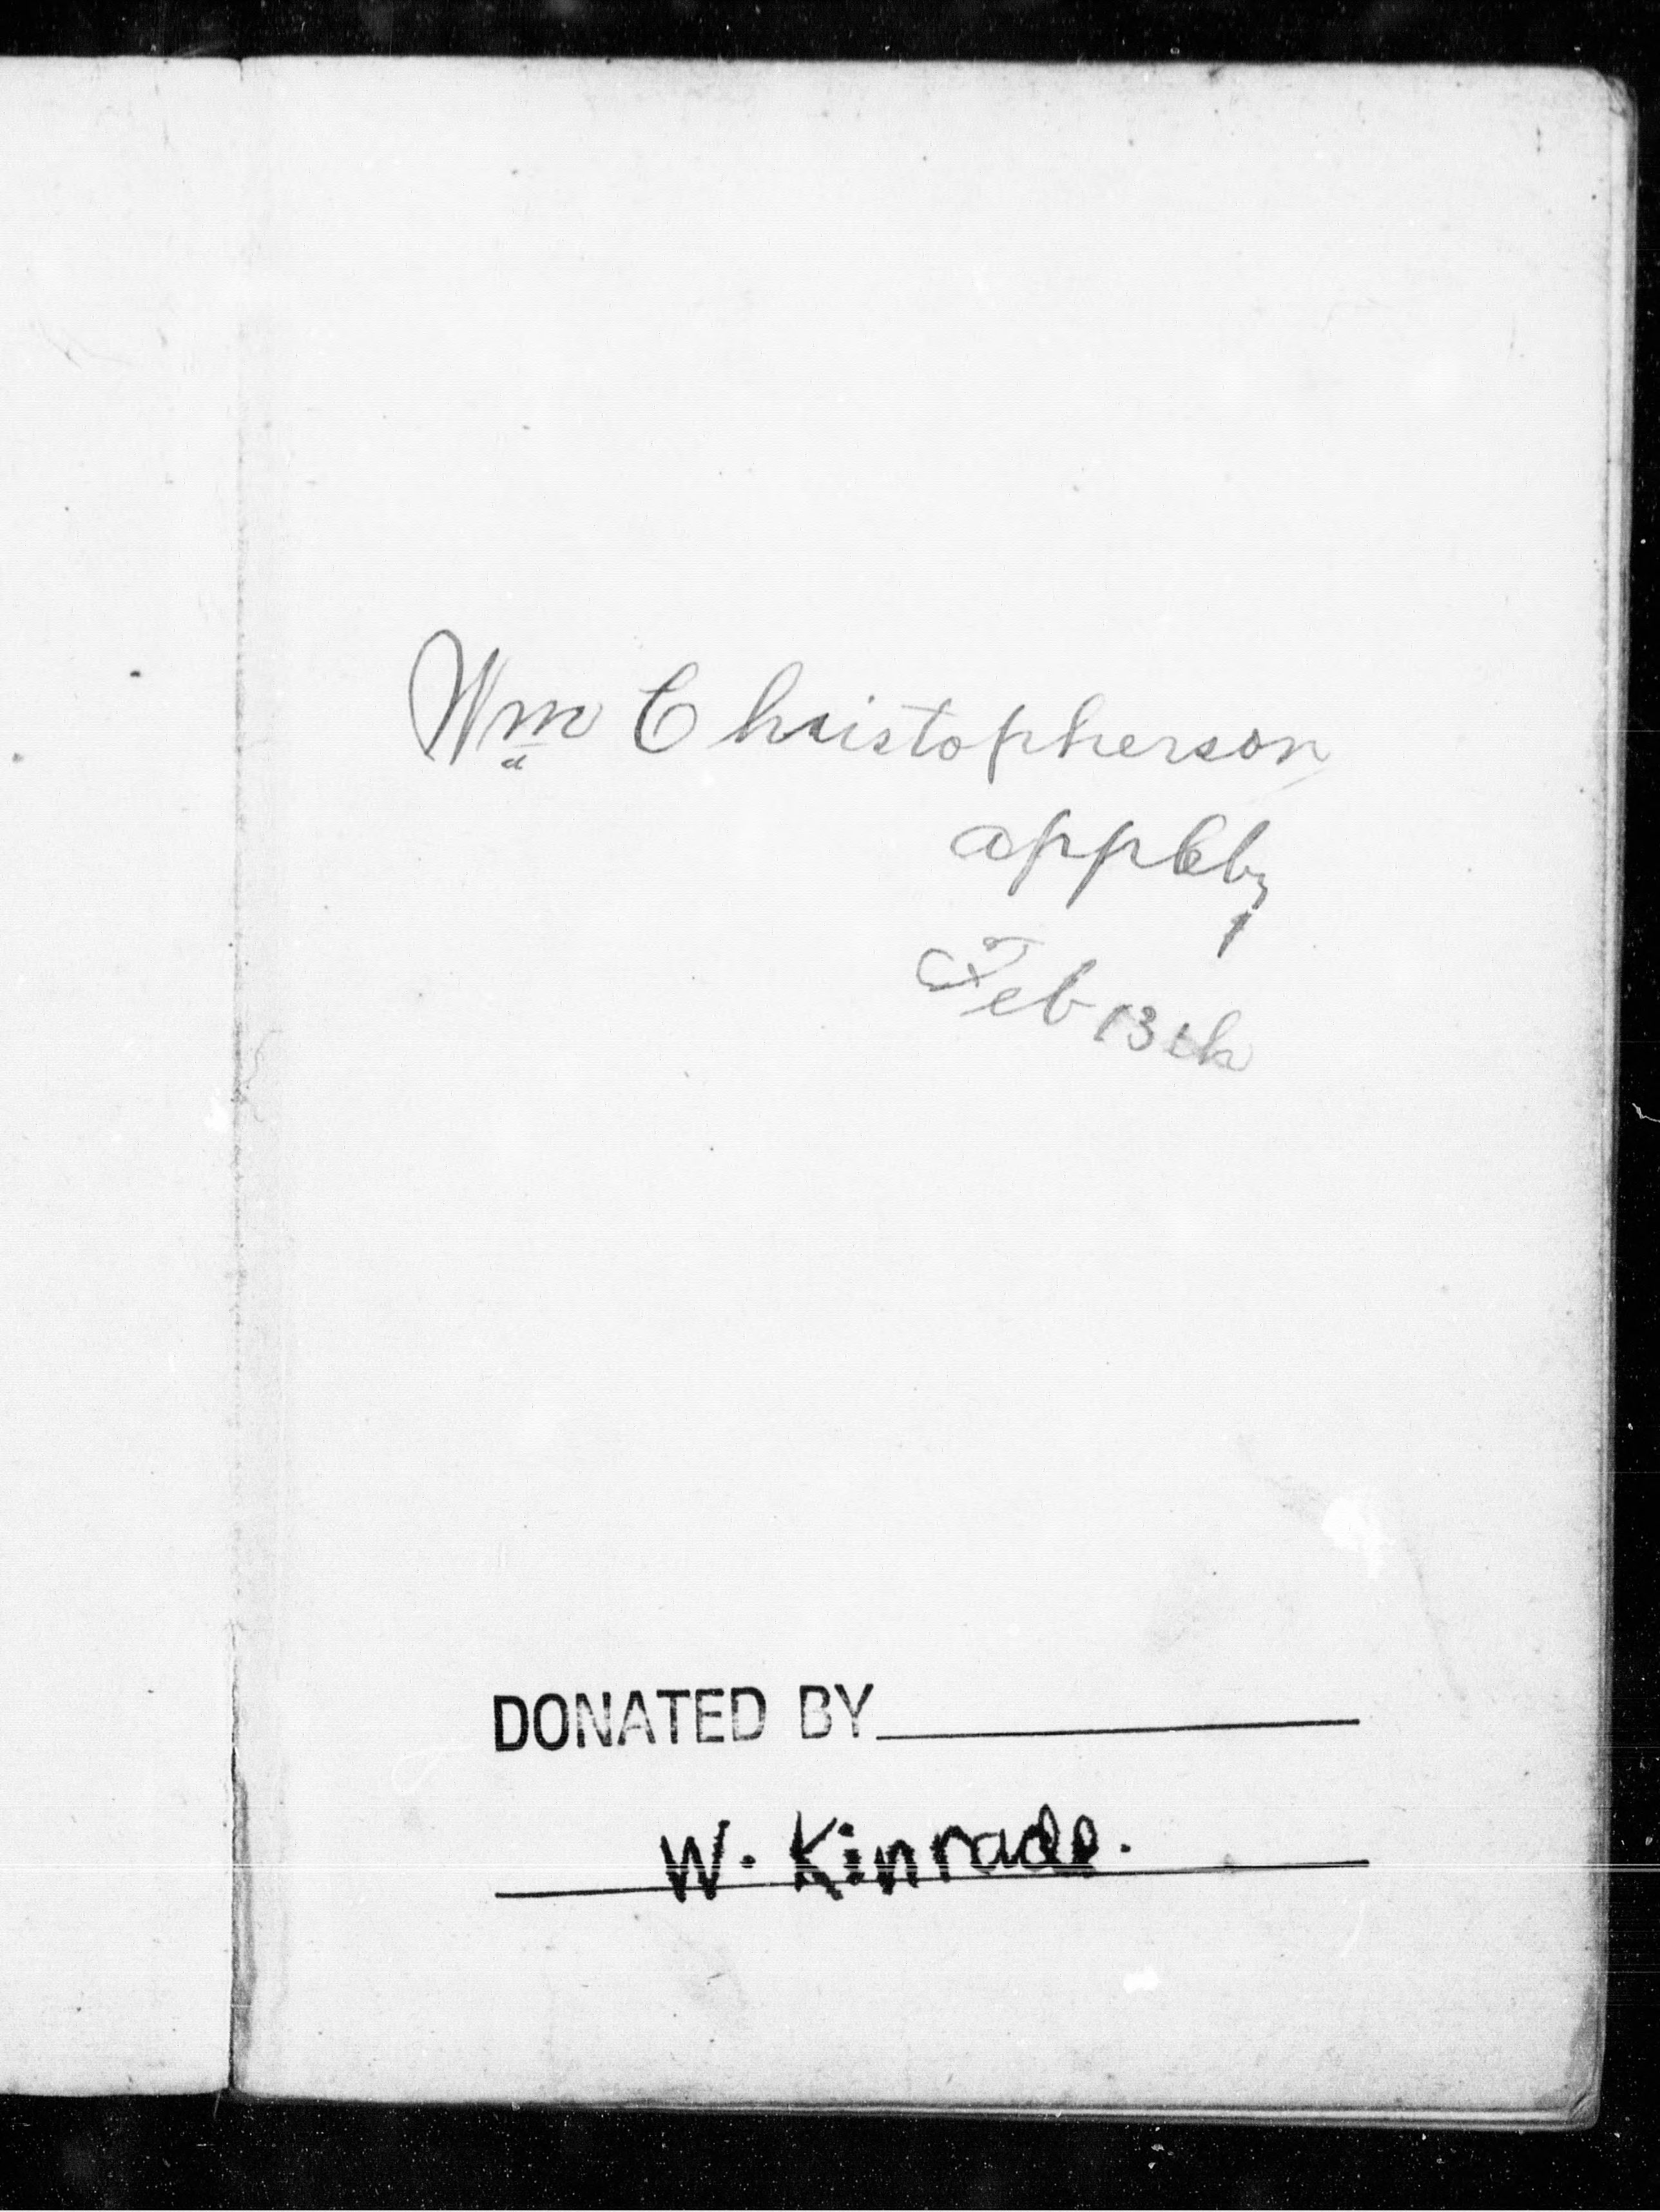 Wm Christopherson
appleby
Feb 13th
DONATED BY
W. Kinrade.